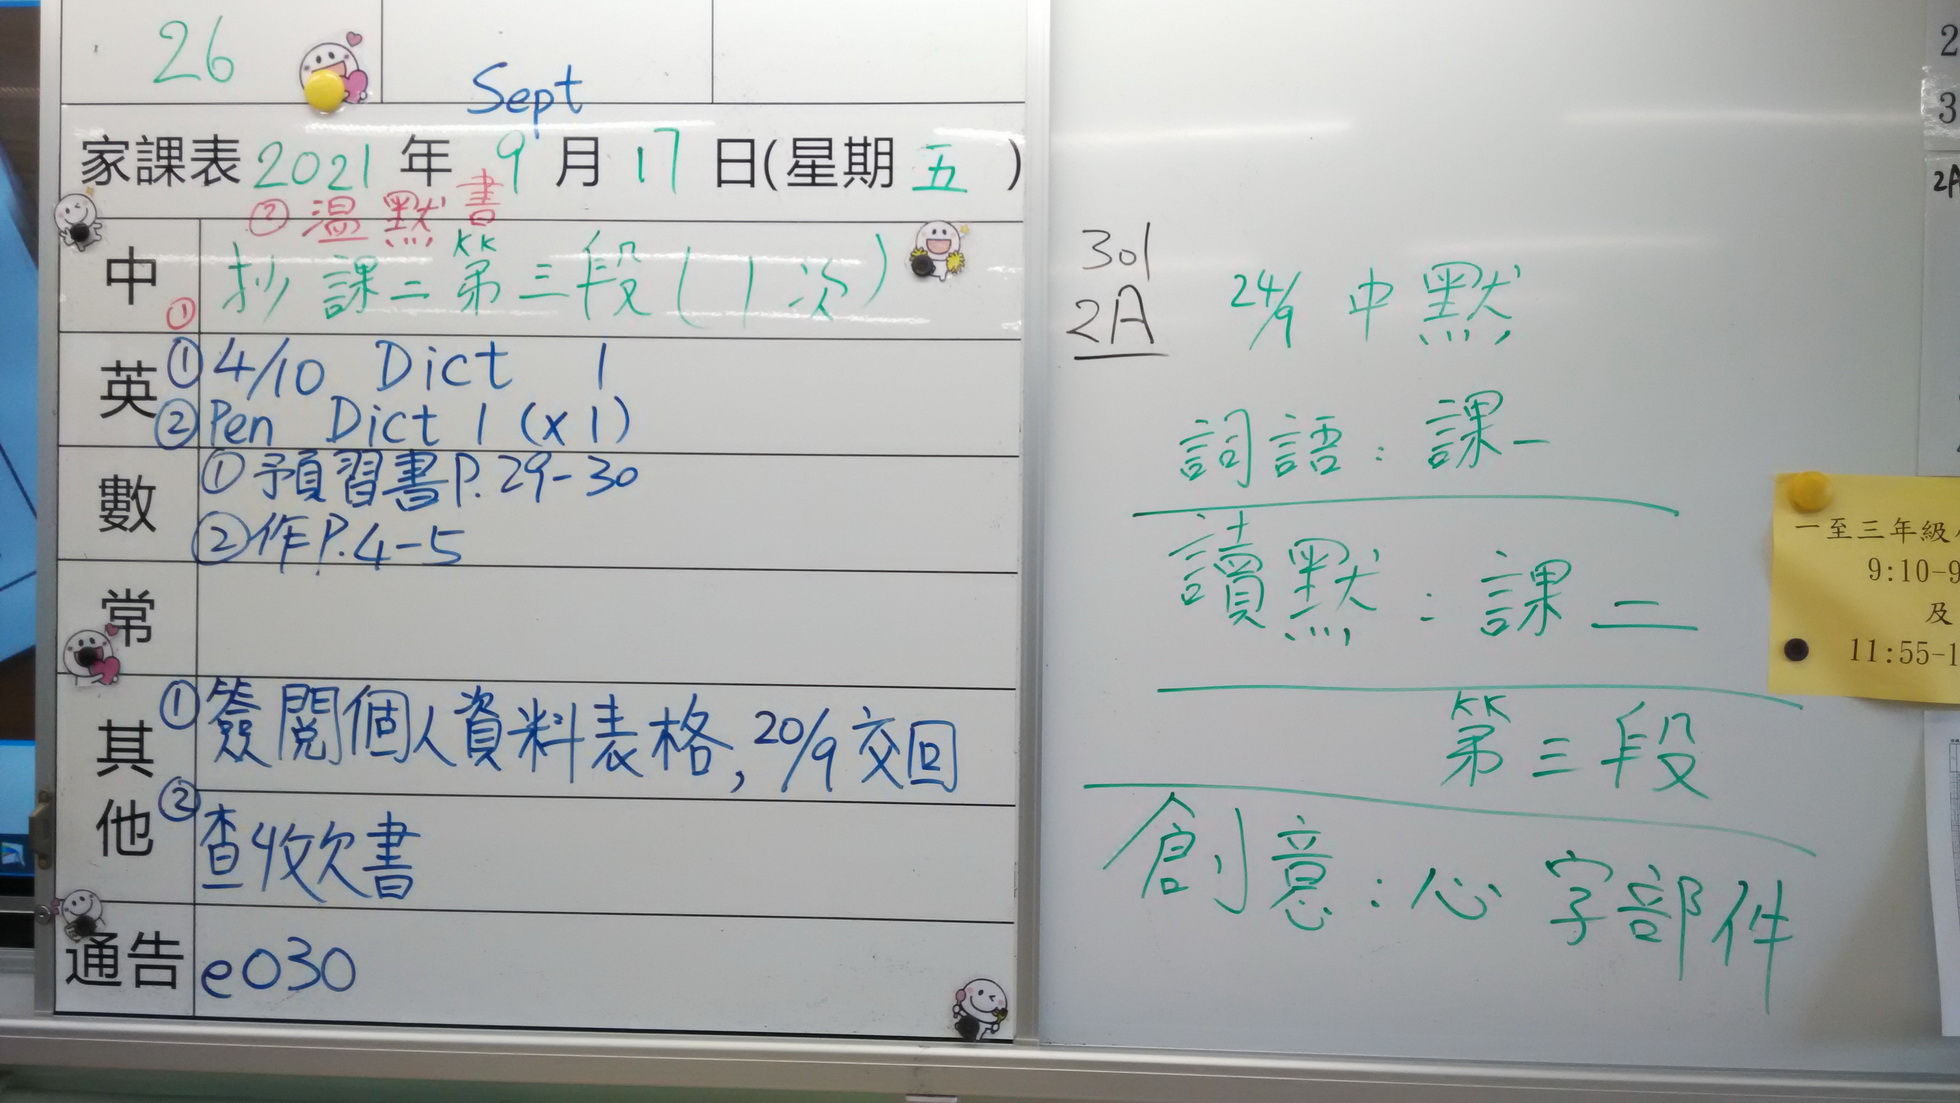 26
Sept
家課表 2021 年 9 月 17 日(星期 五 )
② 溫默書
中 ① 抄課二第三段(1次)
英 ① 4/10 Dict 1
② Pen Dict 1 (x1)
數 ① 預習書P.29-30
② 作P.4-5
常
其他 ① 簽閱個人資料表格, 20/9 交回
② 查收欠書
通告 e030
301
2A
24/9 中默
詞語：課一
讀默：課二
第三段
創意：心字部件
2
3
2A
一至三年級
9:10-9
及
11:55-1